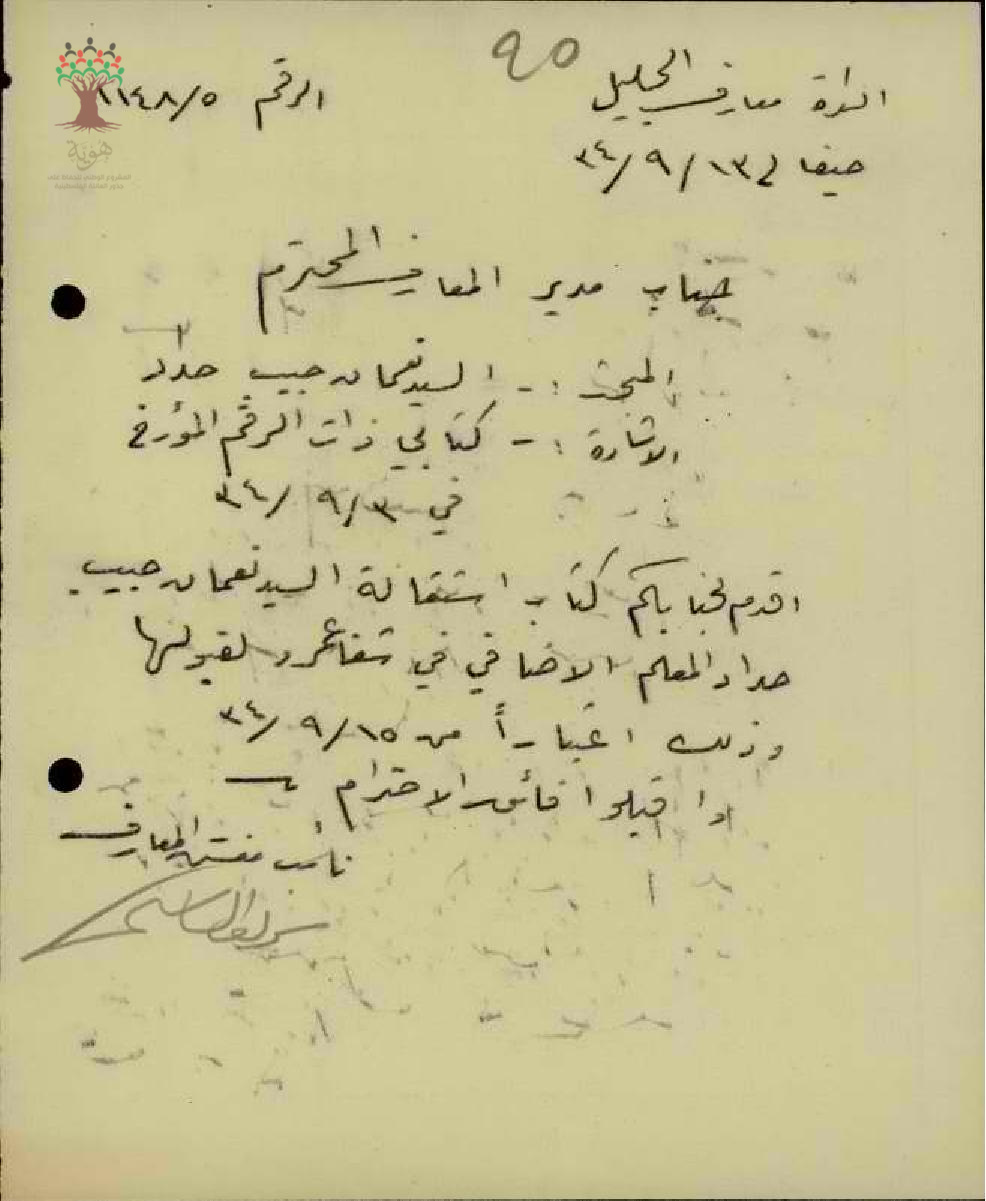 ٩٥
ادارة معارف الجليل
الرقم ١١٤٨/٥
حيفا في ١٣/٩/٣٤
هوية
جناب مدير المعارف المحترم
المبحث :- السيد نعمان حبيب حداد
الاشارة :- كتابي ذات الرقم المؤرخ
في ٣/٩/٣٤
اقدم لجنابكم كتاب استقالة السيد نعمان حبيب
حداد المعلم الاضافي في شفاعمرو لقبولها
وذلك اعتباراً من ١٥/٩/٣٤
واقبلوا فائق الاحترام
نائب مفتش المعارف